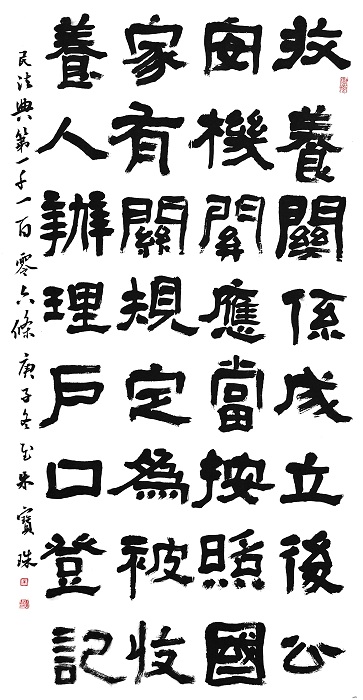 收養關係成立後公
安機關應當按照國
家有關規定為被收
養人辦理戶口登記
民法典第一千一百零六條 庚子冬至 朱寶珠